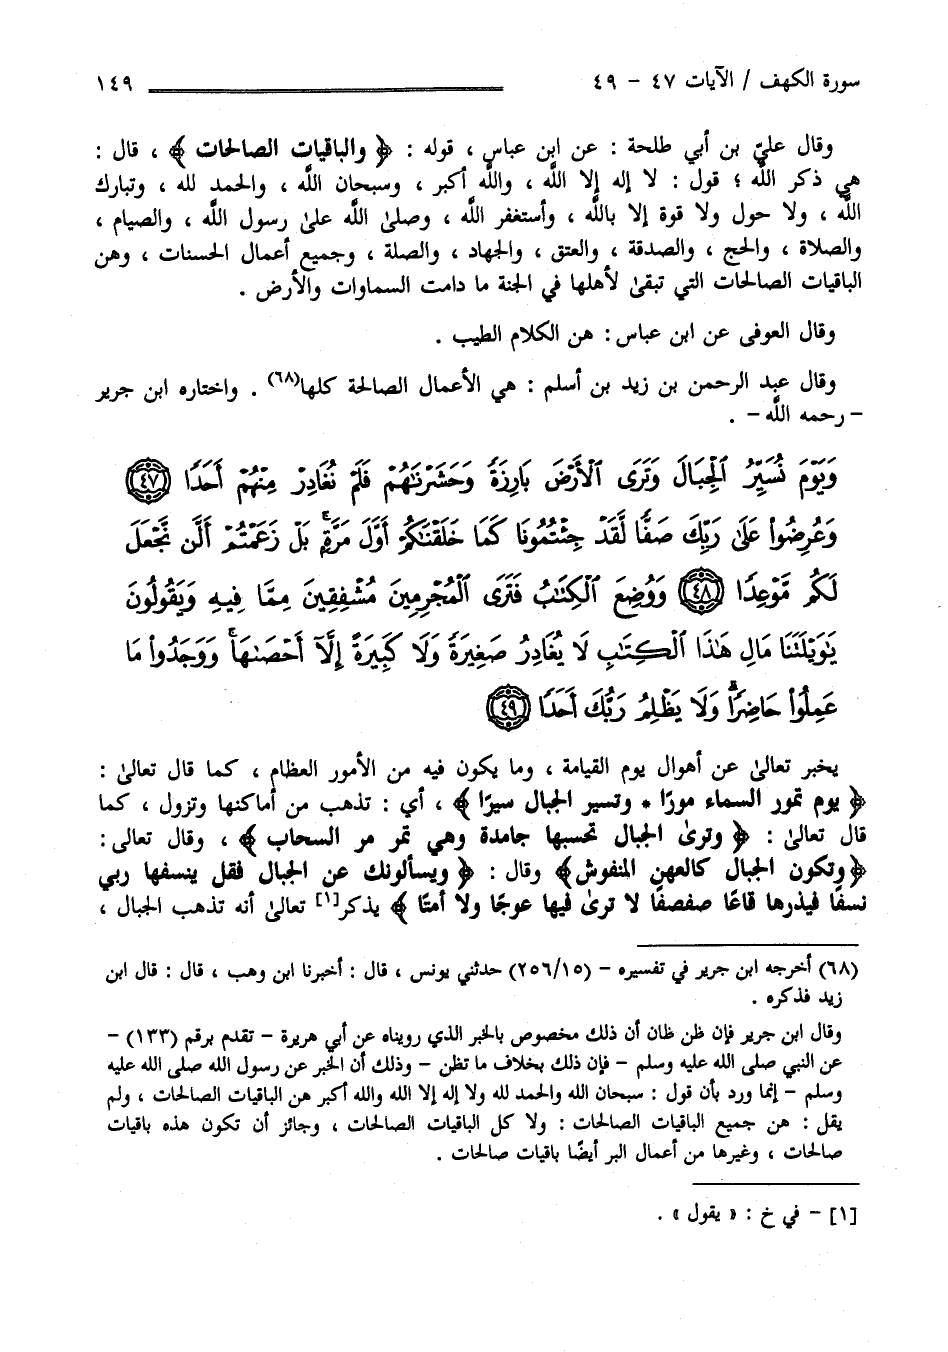 سورة الكهف / الآيات ٤٧ - ٤٩ ١٤٩
وقال عليّ بن أبي طلحة : عن ابن عباس ، قوله : ﴿ والباقيات الصالحات ﴾ ، قال :
هي ذكر اللَّه ؛ قول : لا إله إلا اللَّه ، واللَّه أكبر ، وسبحان اللَّه ، والحمد لله ، وتبارك
اللَّه ، ولا حول ولا قوة إلا باللَّه ، وأستغفر اللَّه ، وصلىٰ اللَّه علىٰ رسول اللَّه ، والصيام ،
والصلاة ، والحج ، والصدقة ، والعتق ، والجهاد ، والصلة ، وجميع أعمال الحسنات ، وهن
الباقيات الصالحات التي تبقىٰ لأهلها في الجنة ما دامت السماوات والأرض .
وقال العوفى عن ابن عباس : هن الكلام الطيب .
وقال عبد الرحمن بن زيد بن أسلم : هي الأعمال الصالحة كلها(٦٨) . واختاره ابن جرير
- رحمه اللَّه - .
وَيَوْمَ نُسَيِّرُ ٱلْجِبَالَ وَتَرَى ٱلْأَرْضَ بَارِزَةً وَحَشَرْنَٰهُمْ فَلَمْ نُغَادِرْ مِنْهُمْ أَحَدًا ٤٧
وَعُرِضُوا۟ عَلَىٰ رَبِّكَ صَفًّا لَّقَدْ جِئْتُمُونَا كَمَا خَلَقْنَٰكُمْ أَوَّلَ مَرَّةٍۭ ۚ بَلْ زَعَمْتُمْ أَلَّن نَّجْعَلَ
لَكُم مَّوْعِدًا ٤٨ وَوُضِعَ ٱلْكِتَٰبُ فَتَرَى ٱلْمُجْرِمِينَ مُشْفِقِينَ مِمَّا فِيهِ وَيَقُولُونَ
يَٰوَيْلَتَنَا مَالِ هَٰذَا ٱلْكِتَٰبِ لَا يُغَادِرُ صَغِيرَةً وَلَا كَبِيرَةً إِلَّآ أَحْصَىٰهَا ۚ وَوَجَدُوا۟ مَا
عَمِلُوا۟ حَاضِرًا ۗ وَلَا يَظْلِمُ رَبُّكَ أَحَدًا ٤٩
يخبر تعالىٰ عن أهوال يوم القيامة ، وما يكون فيه من الأمور العظام ، كما قال تعالىٰ :
﴿ يوم تمور السماء مورًا * وتسير الجبال سيرًا ﴾ ، أي : تذهب من أماكنها وتزول ، كما
قال تعالىٰ : ﴿ وترىٰ الجبال تحسبها جامدة وهي تمر مر السحاب ﴾ ، وقال تعالى :
﴿وتكون الجبال كالعهن المنفوش﴾ وقال : ﴿ ويسألونك عن الجبال فقل ينسفها ربي
نسفًا فيذرها قاعًا صفصفًا لا ترىٰ فيها عوجًا ولا أمتًا ﴾ يذكر[١] تعالىٰ أنه تذهب الجبال ،
(٦٨) أخرجه ابن جرير في تفسيره - (٢٥٦/١٥) حدثني يونس ، قال : أخبرنا ابن وهب ، قال : قال ابن
زيد فذكره .
وقال ابن جرير فإن ظن ظان أن ذلك مخصوص بالخبر الذي رويناه عن أبي هريرة - تقدم برقم (١٣٣) -
عن النبي صلى الله عليه وسلم - فإن ذلك بخلاف ما تظن - وذلك أن الخبر عن رسول الله صلى الله عليه
وسلم - إنما ورد بأن قول : سبحان الله والحمد لله ولا إله إلا الله والله أكبر هن الباقيات الصالحات ، ولم
يقل : هن جميع الباقيات الصالحات : ولا كل الباقيات الصالحات ، وجائز أن تكون هذه باقيات
صالحات ، وغيرها من أعمال البر أيضًا باقيات صالحات .
[١] - في خ : « يقول » .